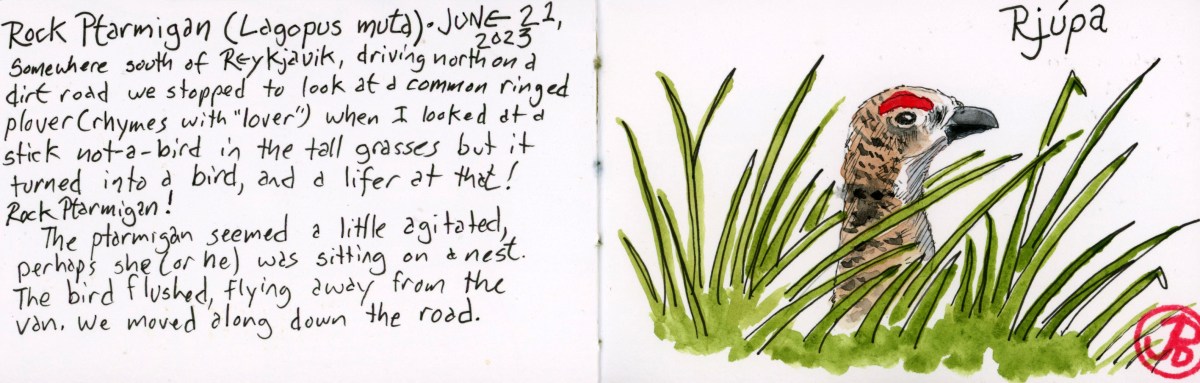 Rock Ptarmigan (Lagopus muta). JUNE 21,
2023
Somewhere south of Reykjavik, driving north on a
dirt road we stopped to look at a common ringed
plover (rhymes with "lover") when I looked at a
stick not-a-bird in the tall grasses but it
turned into a bird, and a lifer at that!
Rock Ptarmigan!
The ptarmigan seemed a little agitated,
perhaps she (or he) was sitting on a nest.
The bird flushed, flying away from the
van. We moved along down the road.
Rjúpa